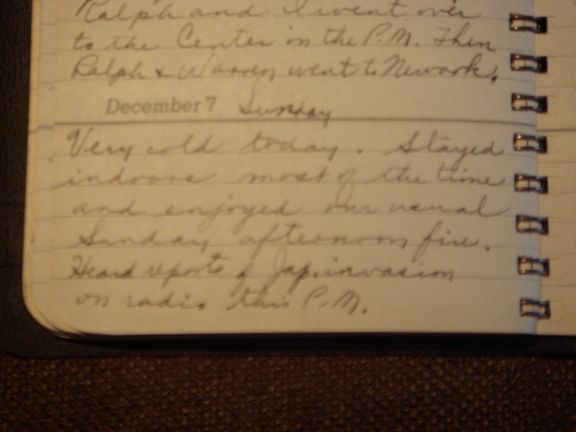 Ralph and I went over
to the Center in the P.M. Then
Ralph & Warren went to Newark.
December 7 Sunday
Very cold today. Stayed
indoors most of the time
and enjoyed our usual
Sunday afternoon fire.
Heard reports of Jap. invasion
on radio this P.M.